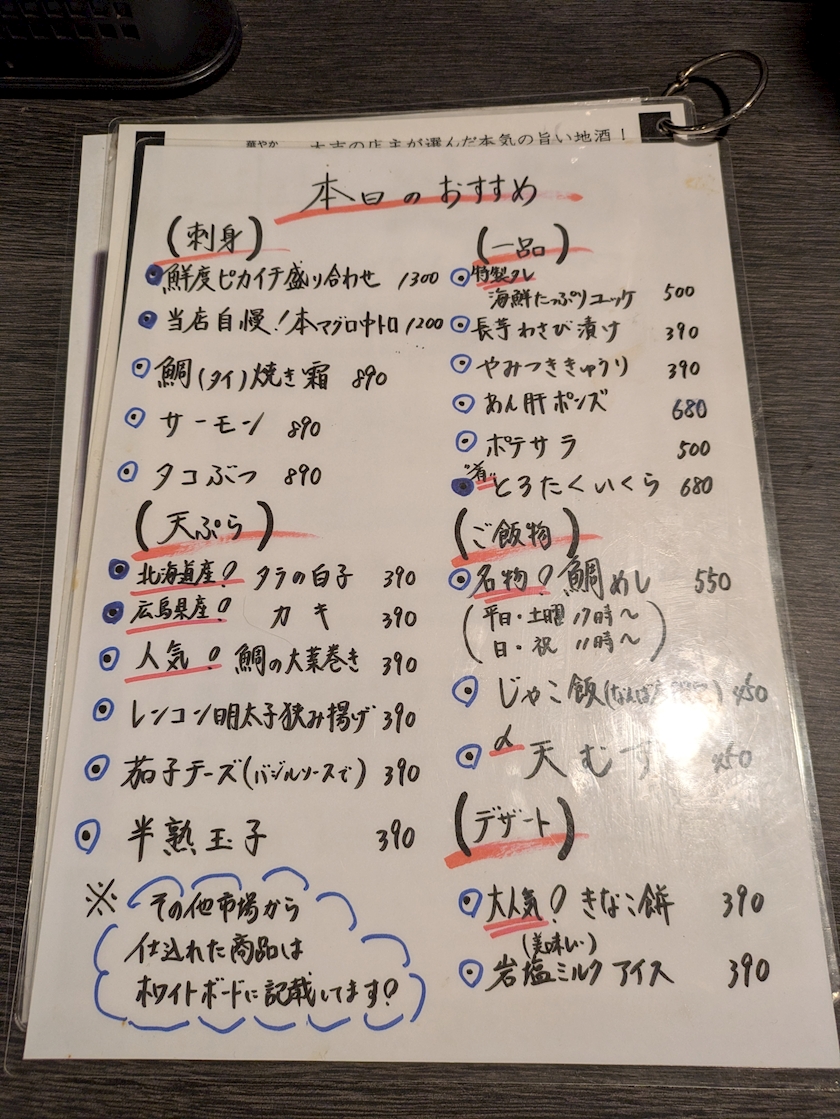 華やか
大吉の店主が選んだ本気の旨い地酒！
本日のおすすめ
(刺身)
鮮度ピカイチ盛り合わせ 1300
当店自慢！本マグロ中トロ 1200
鯛(タイ)焼き霜 890
サーモン 890
タコぶつ 890
(天ぷら)
北海道産！ タラの白子 390
広島県産！ カキ 390
人気！ 鯛の大葉巻き 390
レンコン明太子狭み揚げ 390
茄子チーズ(バジルソースで) 390
半熟玉子 390
※その他市場から
仕込れた商品は
ホワイトボードに記載してます！
(一品)
特製タレ
海鮮たっぷりユッケ 500
長芋わさび漬け 390
やみつききゅうり 390
あん肝ポンズ 680
ポテサラ 500
"肴"
とろたくいくら 680
(ご飯物)
名物！鯛めし 550
(平日・土曜 17時〜
日・祝 11時〜)
じゃこ飯
〆天むす
(デザート)
大人気！きなこ餅 390
(美味い)
岩塩ミルクアイス 390